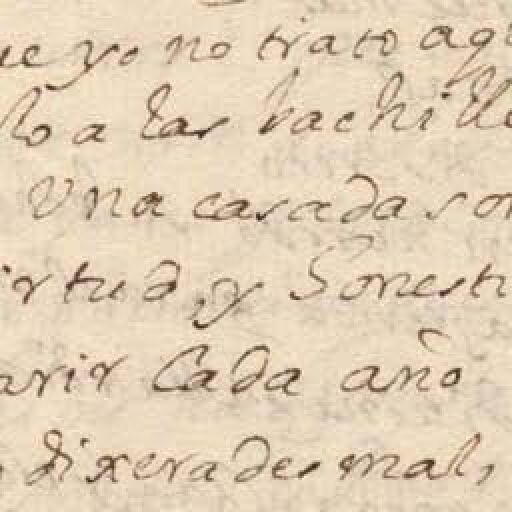 ue yo no trato aqu
lo a las bachille
Una casada son
irtud, y honesti
arir Cada año
dixera de mal,